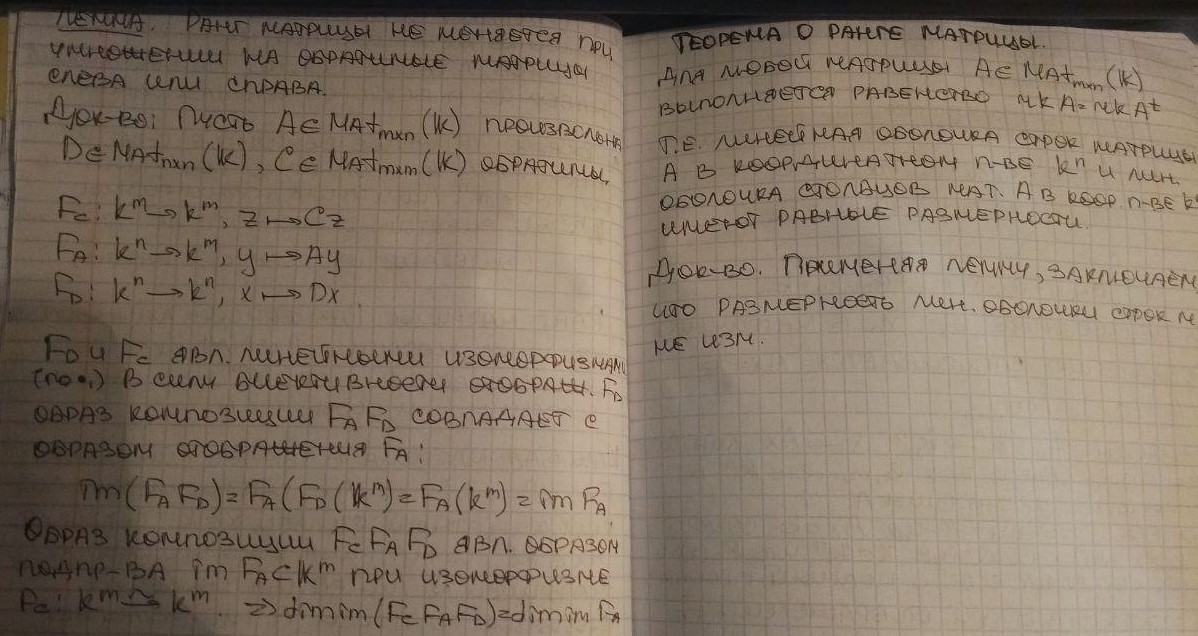 ЛЕММА. РАНГ МАТРИЦЫ НЕ МЕНЯЕТСЯ ПРИ
УМНОЖЕНИИ НА ОБРАТИМЫЕ МАТРИЦЫ
СЛЕВА ИЛИ СПРАВА.
ДОК-ВО: ПУСТЬ A∈MAt_{m×n}(K) ПРОИЗВОЛЬНА
D∈MAt_{n×n}(K), C∈MAt_{m×m}(K) ОБРАТИМЫ,
F_C: k^m→k^m, z↦Cz
F_A: k^n→k^m, y↦Ay
F_D: k^n→k^n, x↦Dx
F_D И F_C ЯВЛ. ЛИНЕЙНЫМИ ИЗОМОРФИЗМАМИ
(по •,) В СИЛУ БИЕКТИВНОСТИ ОТОБРАЖ. F_D
ОБРАЗ КОМПОЗИЦИИ F_A F_D СОВПАДАЕТ С
ОБРАЗОМ ОТОБРАЖЕНИЯ F_A:
im(F_A F_D)=F_A(F_D(K^n)=F_A(k^m)=im F_A
ОБРАЗ КОМПОЗИЦИИ F_C F_A F_D ЯВЛ. ОБРАЗОМ
ПОДПР-ВА im F_A⊂K^m ПРИ ИЗОМОРФИЗМЕ
F_C: k^m ⥲ k^m. ⇒ dim im(F_C F_A F_D)=dim im F_A
ТЕОРЕМА О РАНГЕ МАТРИЦЫ.
ДЛЯ ЛЮБОЙ МАТРИЦЫ A∈MAt_{m×n}(K)
ВЫПОЛНЯЕТСЯ РАВЕНСТВО rk A=rk A^t
Т.Е. ЛИНЕЙНАЯ ОБОЛОЧКА СТРОК МАТРИЦЫ
A В КООРДИНАТНОМ П-ВЕ k^n И ЛИН.
ОБОЛОЧКА СТОЛБЦОВ МАТ. A В КООР. П-ВЕ k
ИМЕЮТ РАВНЫЕ РАЗМЕРНОСТИ.
ДОК-ВО. ПРИМЕНЯЯ ЛЕММУ, ЗАКЛЮЧАЕМ
ЧТО РАЗМЕРНОСТЬ ЛИН. ОБОЛОЧКИ СТРОК М
НЕ ИЗМ.